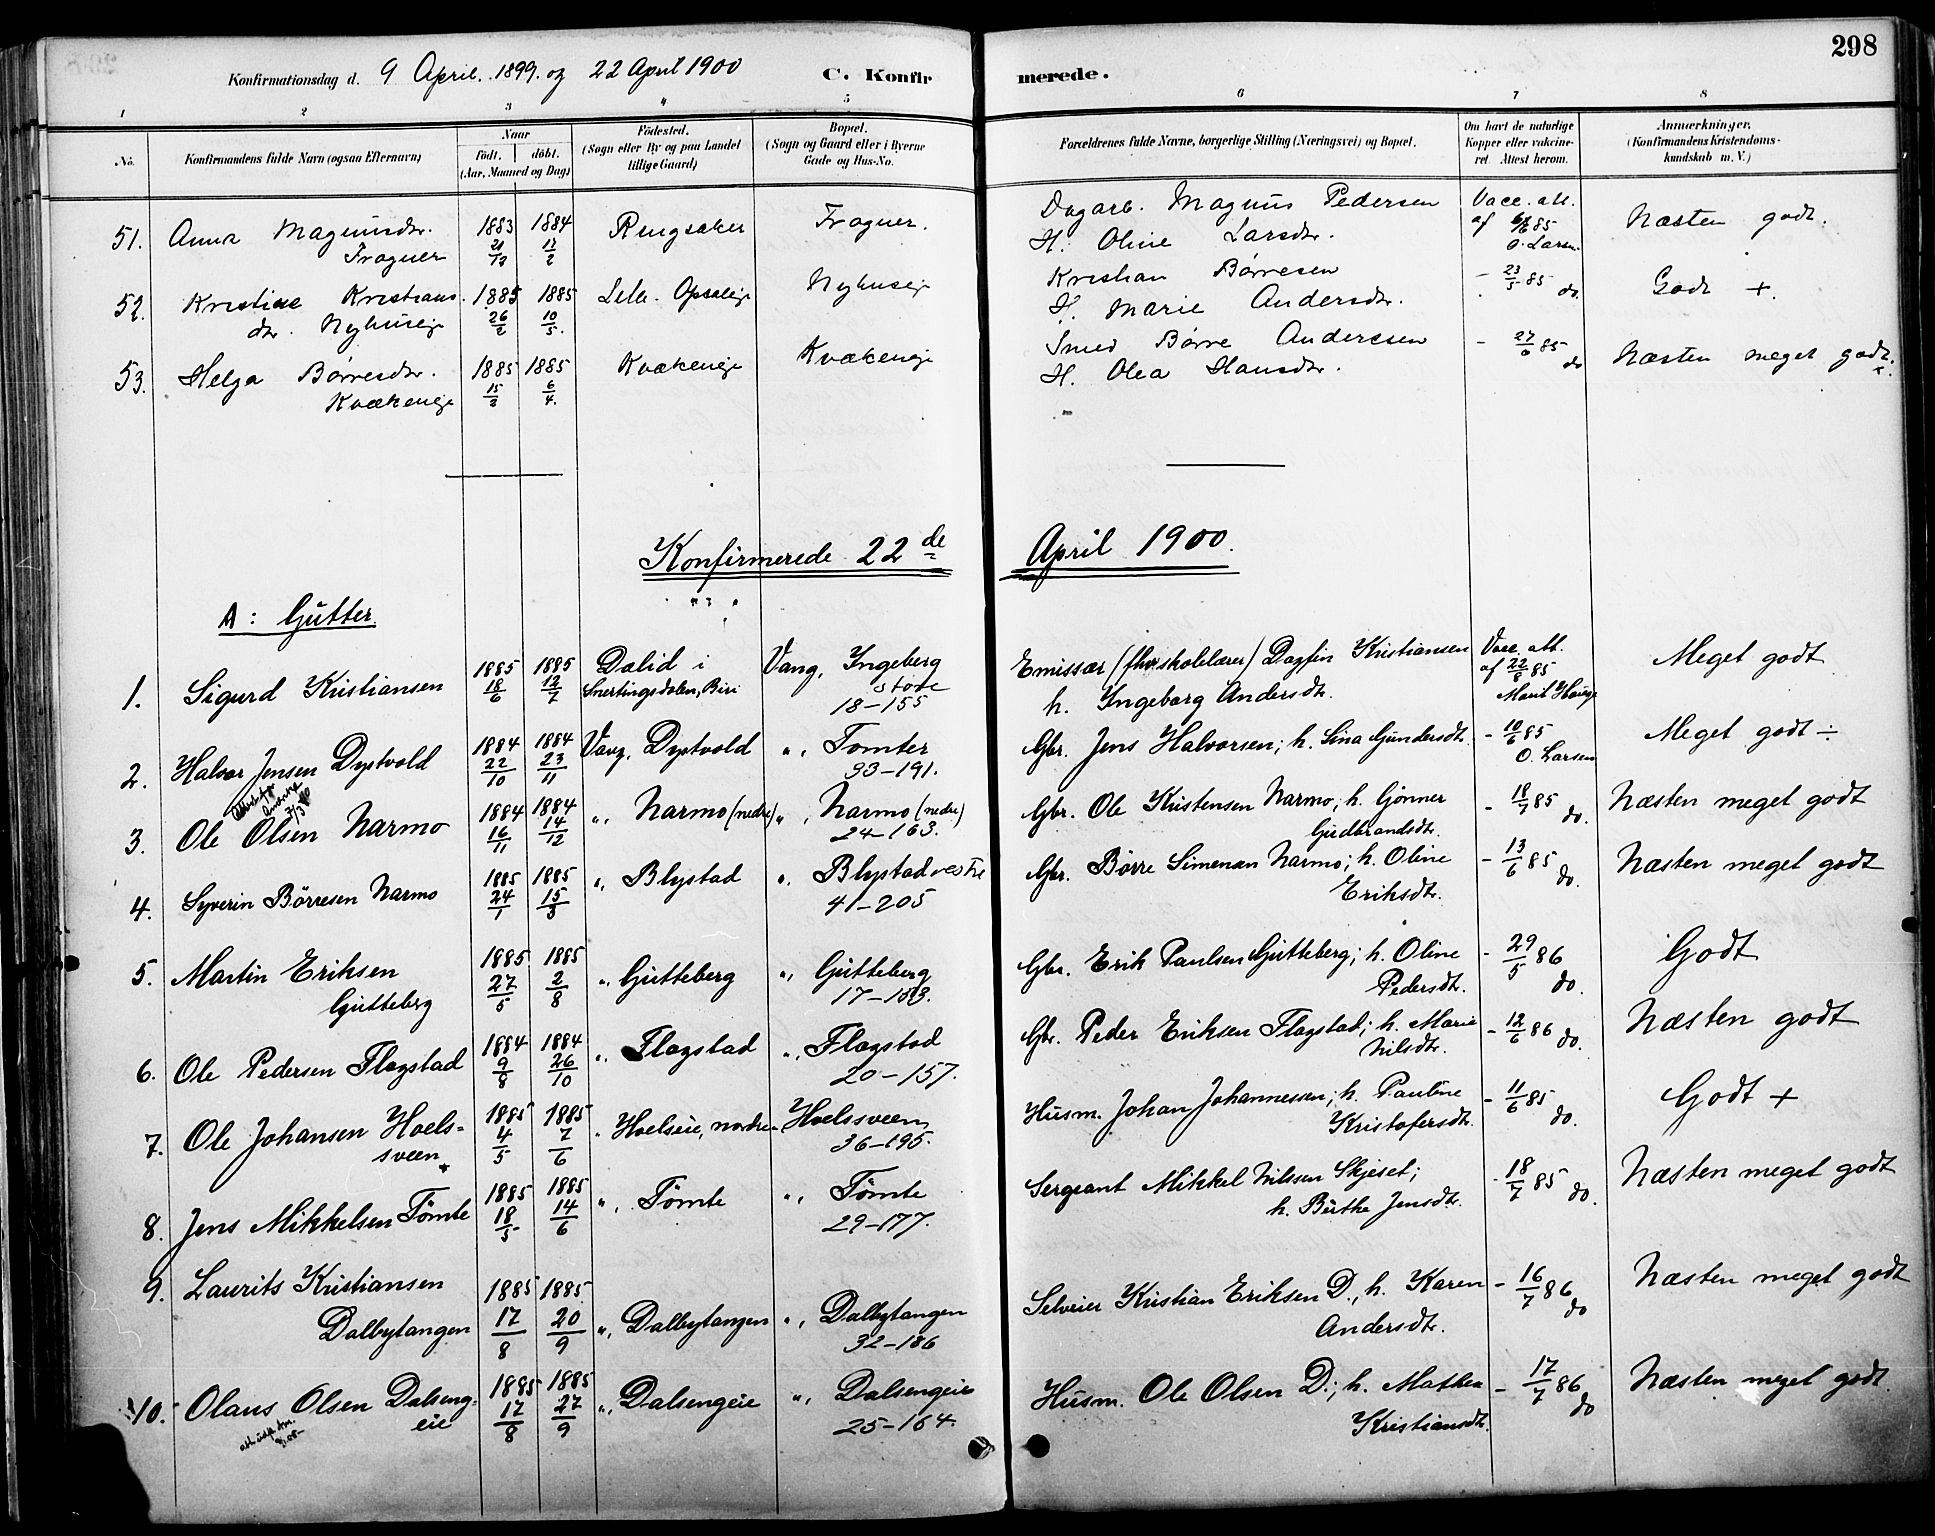 298
Konfirmationsdag d. 9 April. 1899. og 22 April 1900 C. Konfirmerede.
1 2 3 4 5 6 7 8
No. Konfirmandens fulde Navn (ogsaa Efternavn) Naar födt. döbt. (Aar, Maaned og Dag) Födested. (Sogn eller By og paa Landet tillige Gaard) Bopæl. (Sogn og Gaard eller i Byerne Gade og Hus-No. Forældrenes fulde Navne, borgerlige Stilling (Næringsvei) og Bopæl. Om havt de naturlige Kopper eller vakcineret. Attest herom. Anmærkninger. (Konfirmandens Kristendomskundskab m. V.)
51. Anna Magnusdtr. 1883 1884 Ringsaker Fragner. Dagarb. Magnus Pedersen Vacc. att. Næsten godt.
Fragner 21/12 17/2 H. Oline Larsdtr. af 6/6 85 O. Larsen
52. Kristine Kristians 1885 1885 Opsaleje Nyhuseje Kristian Børresen - 23/5 85 do. Godt +.
dtr. Nyhuseje 26/2 10/5. H. Marie Andersdtr.
53. Helga Børresdtr. 1885 1885 Kvækeneje Kvækeneje Smed Børre Andersen - 27/6 85 do Næsten meget godt. +.
Kvækeneje 15/2 6/4. H. Olea Hansdtr.
Konfirmerede 22de April 1900.
A: Gutter.
1. Sigurd Kristiansen 1885 1885 Dalid i Vang, Ingeberg Emissær (fhv. skolelærer) Dagfin Kristiansen Vacc. att. Meget godt
18/6 12/7 Snertingsdalen, Biri store h. Ingeborg Andersdtr. af 22/8 85
18-155 Marit Hauge
2. Halvor Jensen Dystvold 1884 1884 Vang, Dystvold ", Tomter Gbr. Jens Halvorsen; h. Lina Gundersdt. - 10/6 85 Meget godt ÷
22/10 23/11 93-191. O. Larsen
3. Ole Olsen Narmo 1884 1884 ", Narmo (nedre) ", Narmo (nedre) Gbr. Ole Kristensen Narmo; h. Gønner - 18/7 85 do. Næsten meget godt
16/11 14/12 24-163. Gudbrandsdtr.
4. Syverin Børresen Narmo 1885 1885 ", Blystad ", Blystad vestre Gbr. Børre Simensen Narmo; h. Oline - 13/6 85 do. Næsten meget godt
24/1 15/3 41-205 Eriksdtr.
5. Martin Eriksen 1885 1885 ", Gutteberg ", Gutteberg Gbr. Erik Paulsen Gutteberg; h. Oline - 29/5 86 do. Godt
Gutteberg 27/5 2/8 17-153. Pedersdtr.
6. Ole Pedersen Flagstad 1884 1884 ", Flagstad ", Flagstad Gbr. Peder Eriksen Flagstad; h. Marie - 12/6 86 do. Næsten godt
9/8 26/10 20-157. Nilsdtr.
7. Ole Johansen Hoels- 1885 1885 " Hoelseie, nordre - Hoelssveen Husm. Johan Johannessen; h. Pauline - 11/6 85 do. Godt +
sveen 4/5 7/6 36-195. Kristofersdtr.
8. Jens Mikkelsen Tømte 1885 1885 ", Tømte ", Tømte Sergeant Mikkel Nilssen Skjeset; - 18/7 85 do. Næsten meget godt
18/5 14/6 29-177. h. Birthe Jensdtr.
9. Laurits Kristiansen 1885 1885 Selveier Kristian Eriksen D., h. Karen - 16/7 86 do Næsten meget godt
Dalbytangen 17/8 20/9 ", Dalbytangen ", Dalbytangen Andersdtr.
32-186
10. Olaus Olsen Dalseng- 1885 1885 ", Dalsengeie ", Dalsengeie Husm. Ole Olsen D.; h. Mathea - 17/7 86 do Næsten meget godt.
eie 17/8 27/9 25-164. Kristiansdtr.